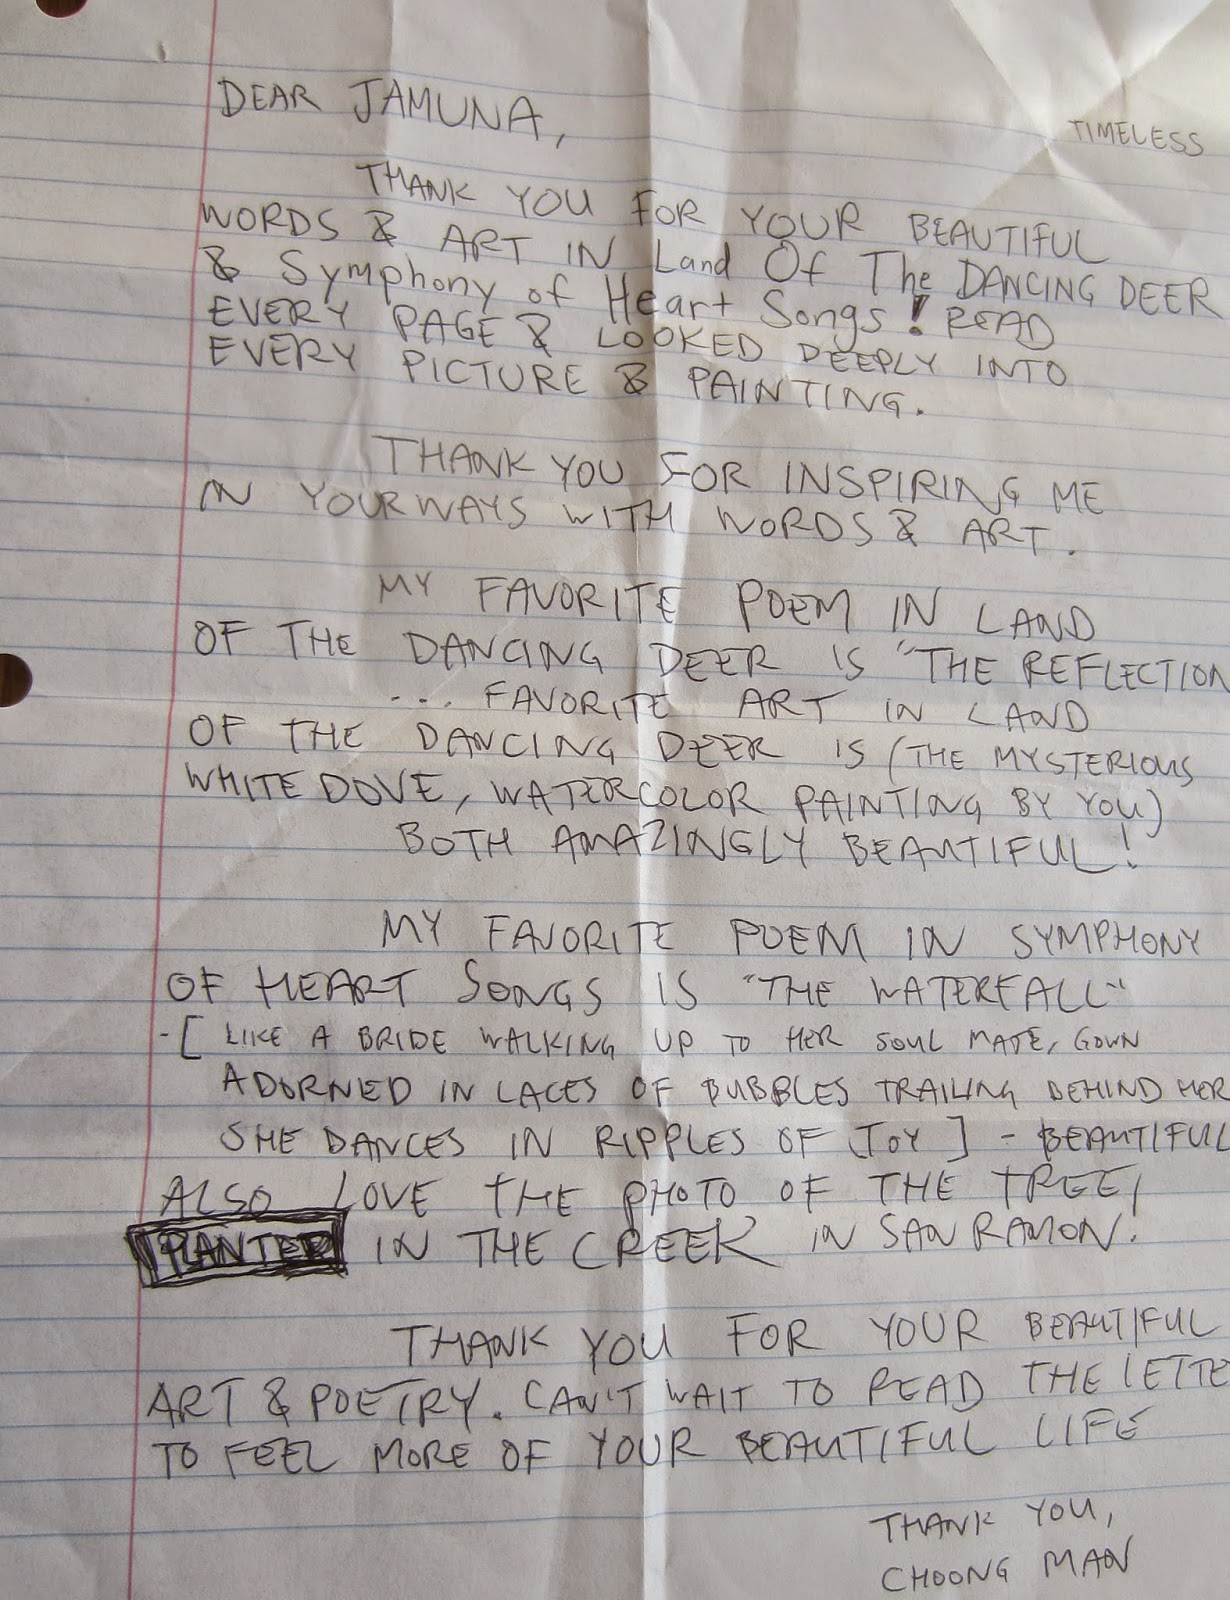 DEAR JAMUNA,
TIMELESS
THANK YOU FOR YOUR BEAUTIFUL
WORDS & ART IN Land Of The DANCING DEER
& Symphony of Heart Songs! READ
EVERY PAGE & LOOKED DEEPLY INTO
EVERY PICTURE & PAINTING.
THANK YOU FOR INSPIRING ME
IN YOUR WAYS WITH WORDS & ART.
MY FAVORITE POEM IN LAND
OF THE DANCING DEER IS "THE REFLECTION
... FAVORITE ART IN LAND
OF THE DANCING DEER IS (THE MYSTERIOUS
WHITE DOVE, WATERCOLOR PAINTING BY YOU)
BOTH AMAZINGLY BEAUTIFUL!
MY FAVORITE POEM IN SYMPHONY
OF HEART SONGS IS "THE WATERFALL"
-[ LIKE A BRIDE WALKING UP TO HER SOUL MATE, GOWN
ADORNED IN LACES OF BUBBLES TRAILING BEHIND HER
SHE DANCES IN RIPPLES OF JOY ] - BEAUTIFUL
ALSO LOVE THE PHOTO OF THE TREE,
PLANTER IN THE CREEK IN SAN RAMON.
THANK YOU FOR YOUR BEAUTIFUL
ART & POETRY. CAN'T WAIT TO READ THE LETTE
TO FEEL MORE OF YOUR BEAUTIFUL LIFE
THANK YOU,
CHOONG MAN